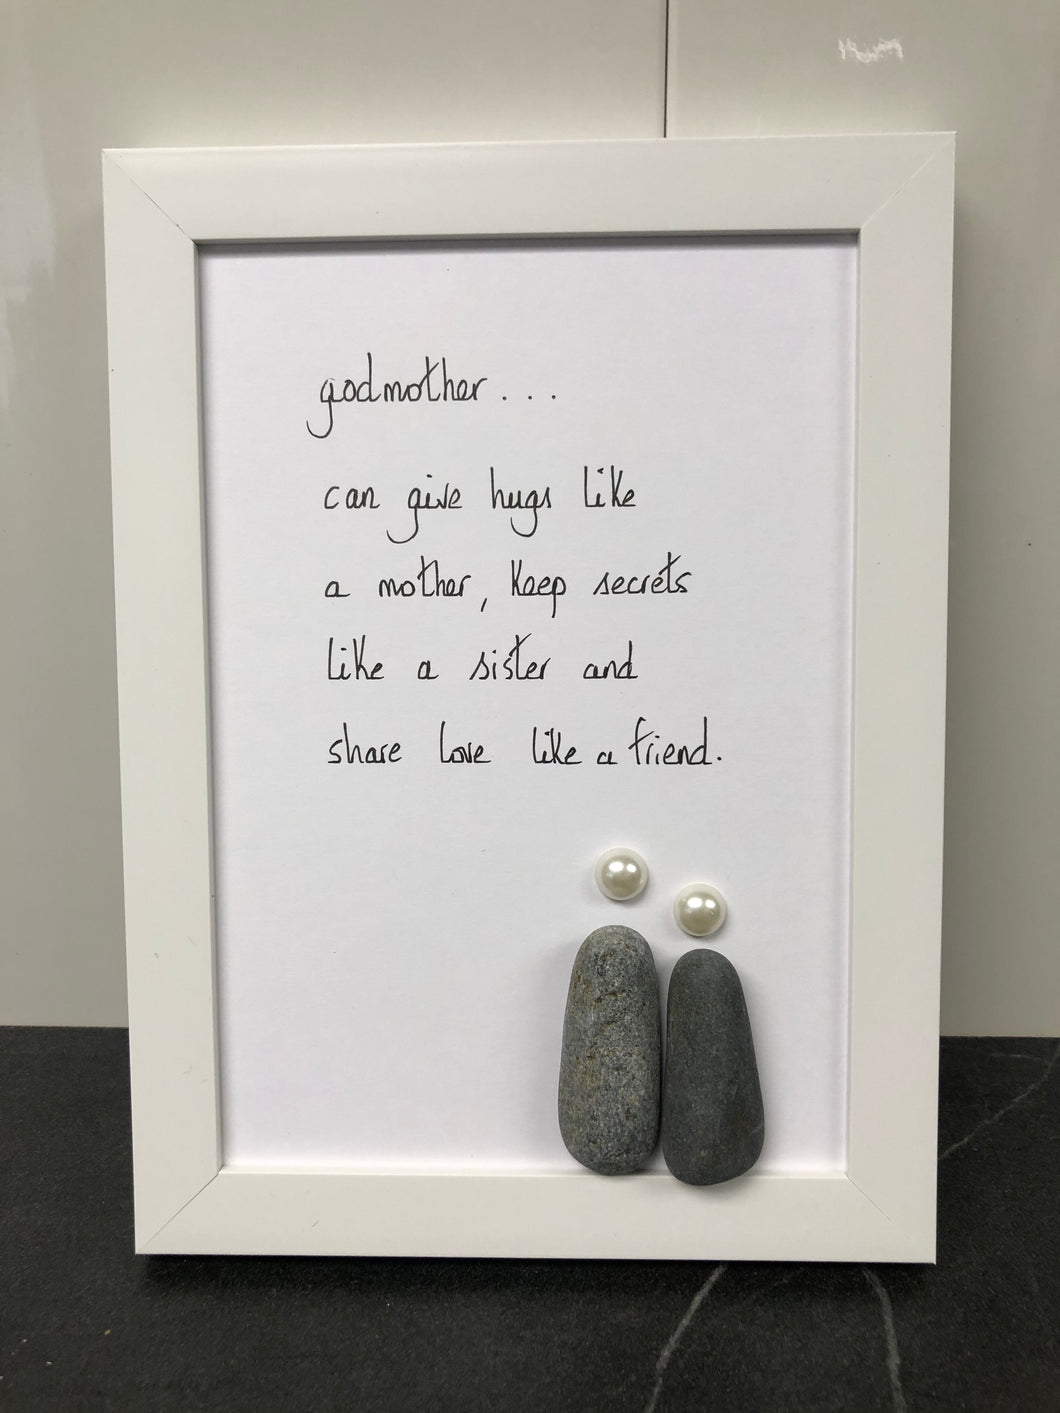 godmother...
can give hugs like
a mother, keep secrets
like a sister and
share love like a friend.